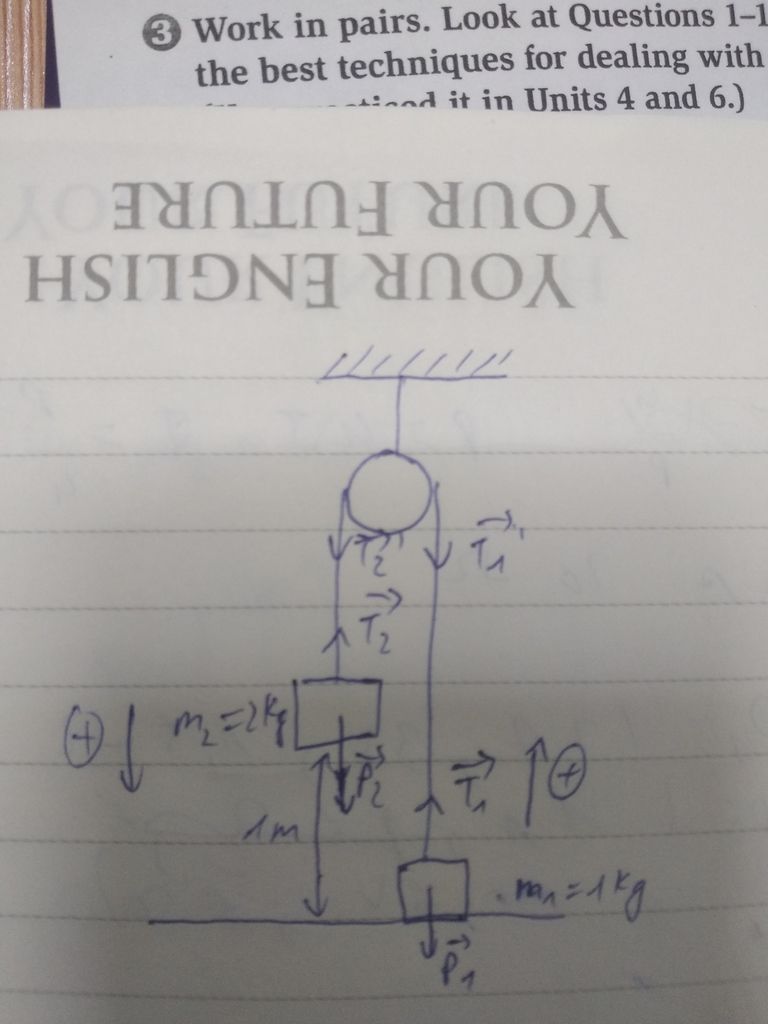 3 Work in pairs. Look at Questions 1–1
the best techniques for dealing with
it in Units 4 and 6.)
YOUR FUTURE
YOUR ENGLISH
T₂'
T₁'
T₂
m₂=2kg
+
P₂
T₁
+
1m
m₁=1kg
P₁